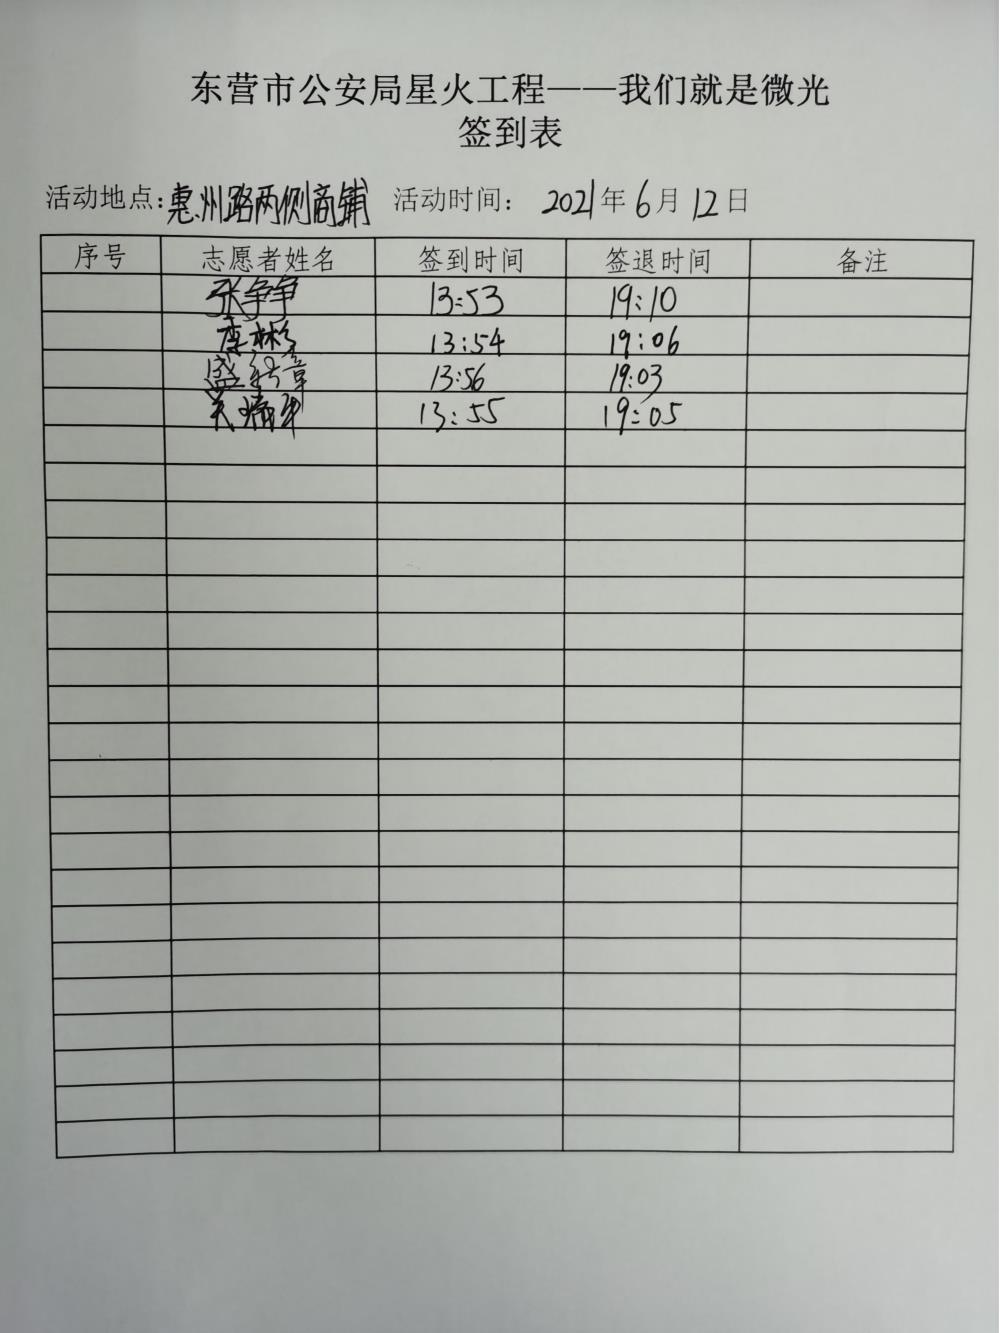 东营市公安局星火工程——我们就是微光
签到表
活动地点:惠州路两侧商铺 活动时间: 2021年6月12日
序号 志愿者姓名 签到时间 签退时间 备注
张争争 13:53 19:10
13:54 19:06
盛 章 13:56 19:03
13:55 19:05